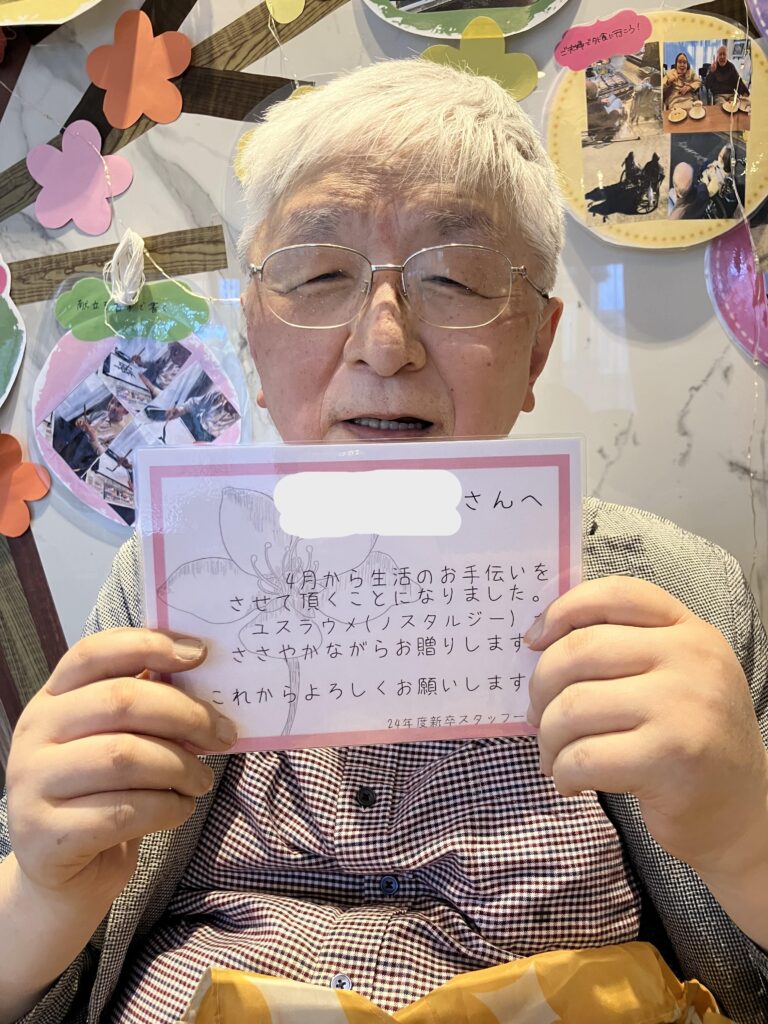 ご夫婦で外食に行こう!
さんへ
4月から生活のお手伝いを
させて頂くことになりました。
ユスラウメ(ノスタルジー)
ささやかながらお贈りします
これからよろしくお願いします
24年度新卒スタッフ一